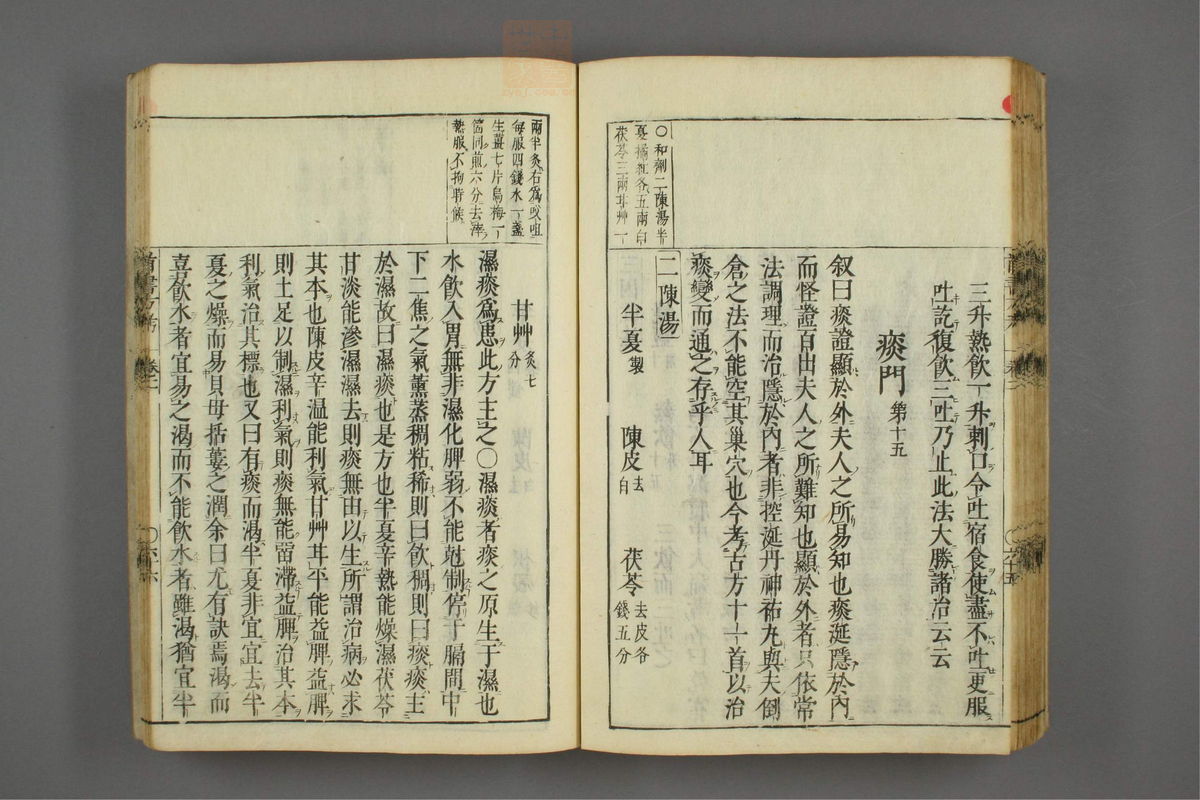 三升熱飲一升刺口令吐宿食使盡不吐更服
吐訖復飲三吐乃止此法大勝諸治云云
痰門 第十五
叙曰痰證顯於外夫人之所易知也痰涎隱於內
而怪證百出夫人之所難知也顯於外者只依常
法調理而治隱於內者非控涎丹神祐丸與夫倒
倉之法不能空其巢穴也今考古方十一首以治
痰變而通之存乎人耳
○和劑二陳湯半
夏橘紅各五兩白
茯苓三兩甘艸一
二陳湯
半夏製 陳皮去白 茯苓去皮各錢五分
兩半炙右爲㕮咀
每服四錢水一盞
生薑七片烏梅一
箇同煎六分去滓
熱服不拘時候
甘艸炙七分
濕痰爲患此方主之○濕痰者痰之原生于濕也
水飲入胃無非濕化脾弱不能剋制停于膈間中
下二焦之氣薰蒸稠粘稀則曰飲稠則曰痰痰主
於濕故曰濕痰也是方也半夏辛熱能燥濕茯苓
甘淡能滲濕濕去則痰無由以生所謂治病必求
其本也陳皮辛温能利氣甘艸甘平能益脾益脾
則土足以制濕利氣則痰無能留滯益脾治其本
利氣治其標也又曰有痰而渴半夏非宜宜去半
夏之燥而易貝母括蔞之潤余曰尤有訣焉渴而
喜飲水者宜易之渴而不能飲水者雖渴猶宜半
卷二
○六十六
○六十五